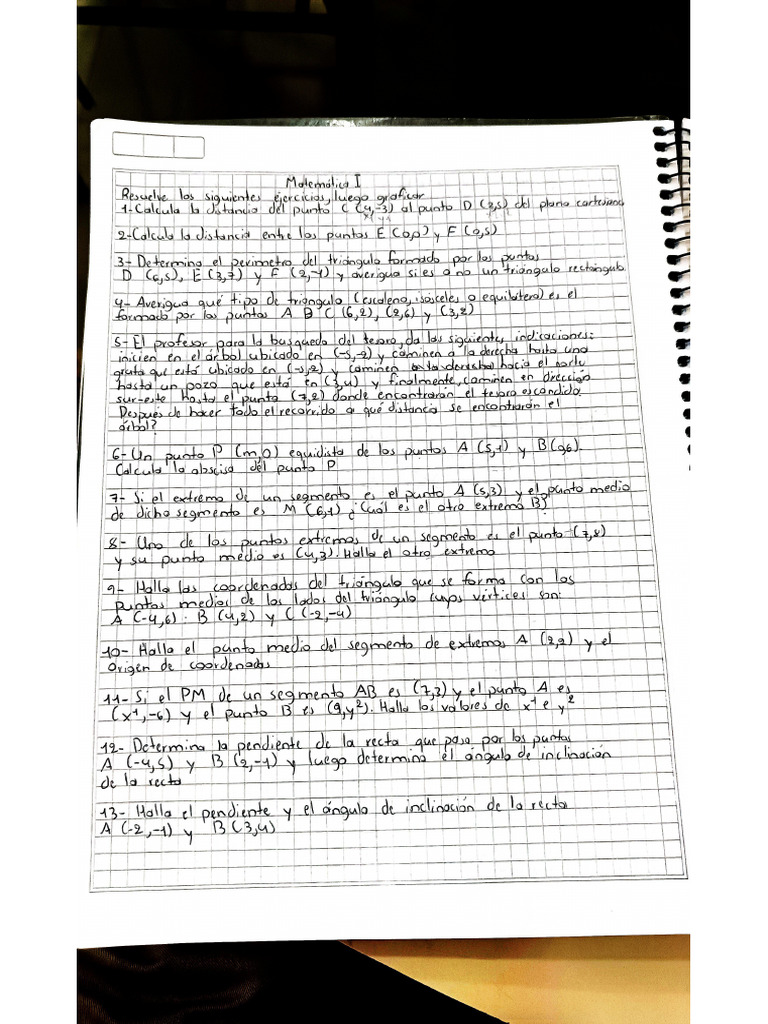 Matemática I
Resuelve los siguientes ejercicios, luego graficar
1-Calcula la distancia del punto C (4,-3) al punto D (3,5) del plano cartesiano
2-Calcula la distancia entre los puntos E (0,0) y F (0,5)
3- Determina el perímetro del triángulo formado por los puntos
D (6,5), E (3,7) y F (2,-1) y averigua si es o no un triángulo rectángulo
4- Averigua qué tipo de triángulo (escaleno, isósceles o equilátero) es el
formado por los puntos A B C (6,2), (2,6) y (3,2)
5- El profesor para la busqueda del tesoro, da las siguientes indicaciones:
inicien en el árbol ubicado en (-5,-2) y caminen a la derecha hasta una
gruta que está ubicado en (-5,2) y caminen hacia el norte
hasta un pozo que está en (3,4) y finalmente, caminen en dirección
sur-este hasta el punto (7,2) donde encontrarán el tesoro escondido.
Después de hacer todo el recorrido a qué distancia se encontrarán el
árbol?
6- Un punto P (m,0) equidista de los puntos A (5,1) y B (9,6).
Calcula la abscisa del punto P
7- Si el extremo de un segmento es el punto A (5,3) y el punto medio
de dicho segmento es M (6,1) ¿Cuál es el otro extremo B?
8- Uno de los puntos extremos de un segmento es el punto (7,8)
y su punto medio es (4,3). Halla el otro extremo
9- Halla las coordenadas del triángulo que se forma con los
puntos medios de los lados del triángulo cuyos vértices son:
A (-4,6) . B (4,2) y C (-2,-4)
10- Halla el punto medio del segmento de extremos A (2,2) y el
origen de coordenadas
11- Si el PM de un segmento AB es (7,3) y el punto A es
(x¹,-6) y el punto B es (9,y²). Halla los valores de x¹ e y²
12- Determina la pendiente de la recta que pasa por los puntos
A (-4,5) y B (2,-1) y luego determina el ángulo de inclinación
de la recta
13- Halla el pendiente y el ángulo de inclinación de la recta
A (-2,-1) y B (3,4)